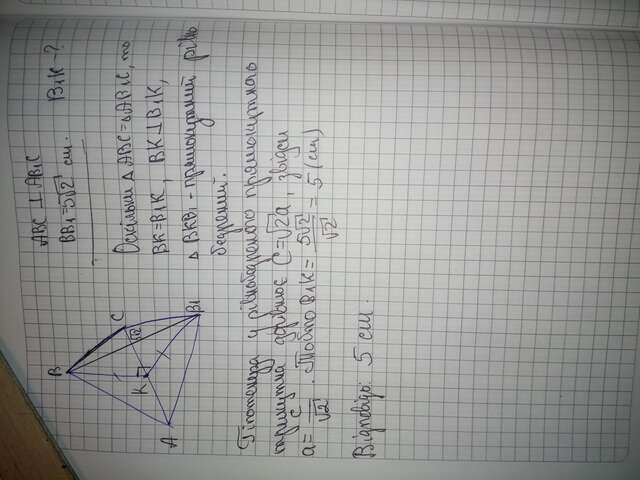 ABC ⊥ AB₁C
BB₁ = 5√2 см.
B₁K - ?
B
C
A
K
B₁
Оскільки △ ABC = △ AB₁C, то
BK = B₁K, BK ⊥ B₁K,
△ BKB₁ - прямокутний рівно
бедрений.
Гіпотенуза у рівнобедреного прямокутного
трикутника дорівнює C = √2a, звідси
a = C/√2. Тобто B₁K = 5√2/√2 = 5 (см)
Відповідь: 5 см.